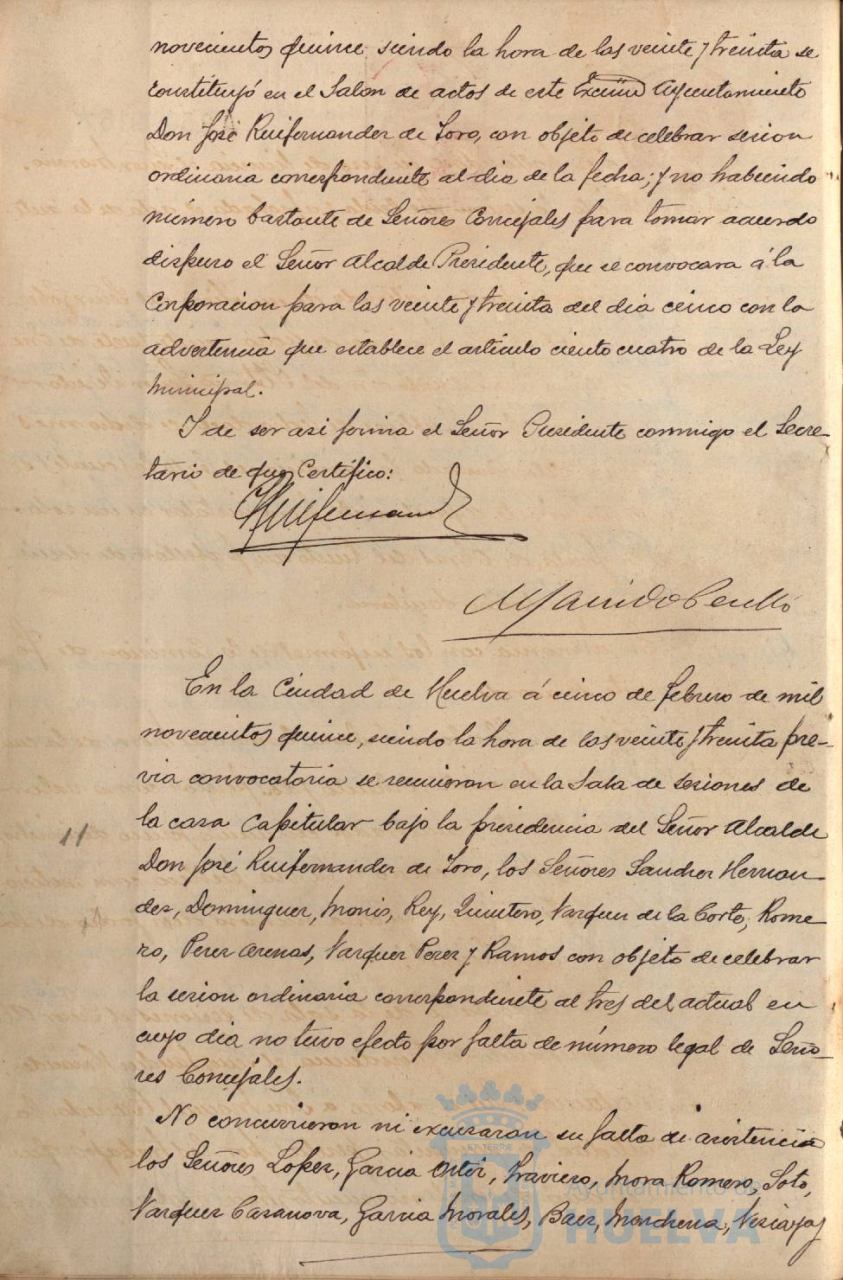 novecientos quince siendo la hora de las veinte y treinta se
constituyó en el Salon de actos de este Excmo Ayuntamiento
Don José Ruifernandez de Toro, con objeto de celebrar sesion
ordinaria correspondiente al dia de la fecha; y no habiendo
número bastante de Señores Concejales para tomar acuerdo
dispuso el Señor Alcalde Presidente, que se convocara á la
Corporacion para las veinte y treinta del dia cinco con la
advertencia que establece el artículo ciento cuatro de la Ley
Municipal.
Y de ser asi firma el Señor Presidente conmigo el Secre-
tario de que Certifico:
En la Ciudad de Huelva á cinco de febrero de mil
novecientos quince, siendo la hora de las veinte y treinta pre-
via convocatoria se reunieron en la Sala de sesiones de
la casa Capitular bajo la presidencia del Señor Alcalde
11
Don José Ruifernandez de Toro, los Señores Sanchez Hernan-
dez, Dominguez, Monis, Rey, Quintero, Vazquez de la Corte, Rome-
ro, Perez Arenas, Vazquez Perez y Ramos con objeto de celebrar
la sesion ordinaria correspondiente al tres del actual en
cuyo dia no tuvo efecto por falta de número legal de Seño-
res Concejales.
No concurrieron ni excusaron su falta de asistencia
los Señores Lopez, Garcia Ortiz, Traviero, Mora Romero, Soto,
Vazquez Casanova, Garcia Morales, Baez, Marchena,
Ayuntamiento de
HUELVA